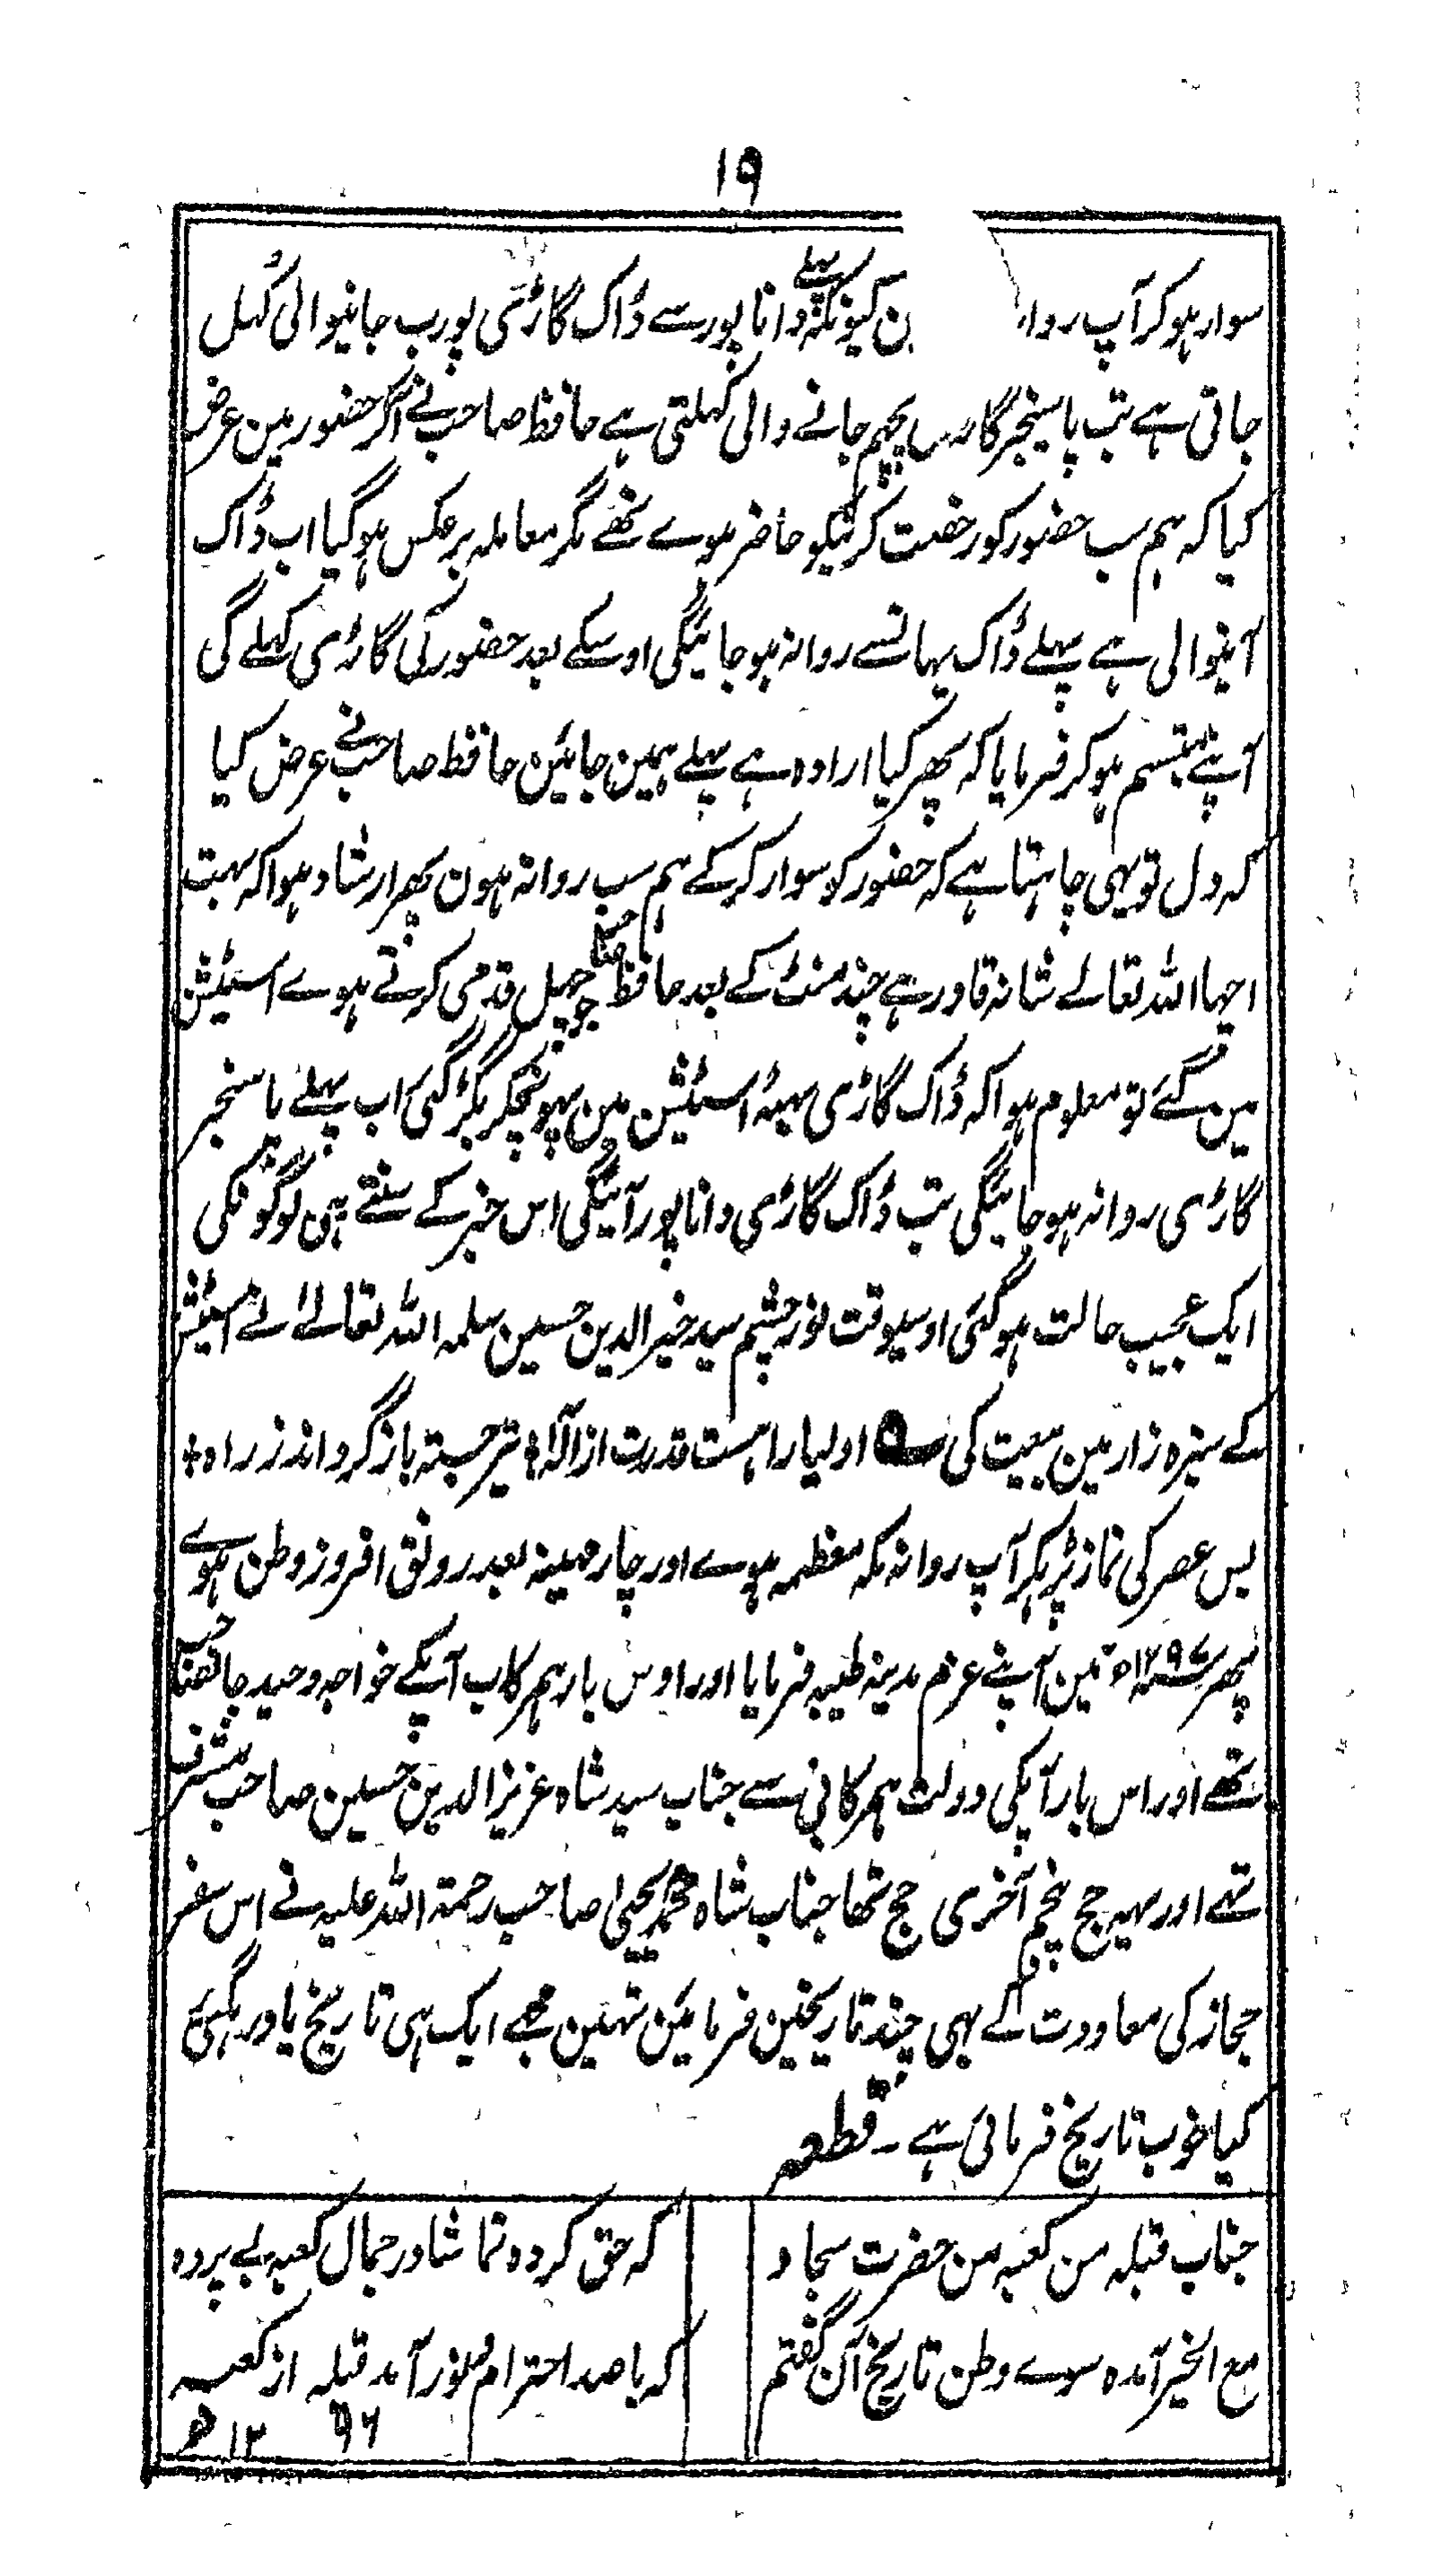 ۱۹
سوار ہوکر آپ روا ن کیونکہ پہلے دانا پور سے ڈاک گاڑی پورب جانیوالی کُہل
جاتی ہے تب پاسینجر گاڑی پچھم جانے والی کہلتی ہے حافظ صاحب نے آکر حضور مین عرض
کیا کہ ہم سب حضور کو رخصت کرنیکو حاضر ہوے تھے مگر معاملہ برعکس ہوگیا اب ڈاک
آنیوالی ہے پہلے ڈاک یہانسے روانہ ہوجائیگی اوسکے بعد حضور کی گاڑی کہلے گی
آپنے متبسم ہوکر فرمایا کہ پھر کیا ارادہ ہے پہلے ہمین جائین حافظ صاحب نے عرض کیا
کہ دل تو یہی چاہتا ہے کہ حضور کو سوار کرکے ہم سب روانہ ہون پھر ارشاد ہوا کہ بہت
اچہا اللہ تعالے شانہ قادر ہے چند منٹ کے بعد حافظ صاحب جو چہل قدمی کرتے ہوے اسٹیشن
مین گئے تو معلوم ہوا کہ ڈاک گاڑی بہیٹہ اسٹیشن مین پہونچکر بگڑ گئی اب پہلے پاسنجر
گاڑی روانہ ہوجائیگی تب ڈاک گاڑی دانا پور آئیگی اس خبر کے سنتے ہی لوگونکی
ایک عجیب حالت ہوگئی اوسیوقت نورچشم سید خیر الدین حسین سلمہ اللہ تعالےٰ نے اسٹیشن
کے سبزہ زار مین بیعت کی ے اولیا را ہست قدرت از الٰہ ٭ تیر جستہ باز گردانند ز راہ ٭
پس عصر کی نماز پڑہکر آپ روانہ مکہ معظمہ ہوے اور چار مہینہ بعد رونق افروز وطن ہوے
پھر سنہ ۱۲۹۶ھ مین آپنے عزم مدینہ طیبہ فرمایا اور اوس بار ہمرکاب آپکے خواجہ وحید جانصاحب
تھے اور اس بار آپکی دولت ہمرکابی سے جناب سید شاہ عزیز الدین حسین صاحب مشرف
تہے اور یہہ حج پنجم آخری حج تھا جناب شاہ محمد یحییٰ صاحب رحمۃ اللہ علیہ نے اس سفر
حجاز کی معاودت کے بہی چند تاریخین فرمائین تہین مجھے ایک ہی تاریخ یاد رہگئی
کیا خوب تاریخ فرمائی ہے ۔ قطعہ
جناب قبلہ من کعبہ من حضرت سجاد
کہ حق کردہ تماشا در جمال کعبہ بے پردہ
مع الخیر آمدہ سوے وطن تاریخ آن گفتم
کہ با صد احترام و نور آمد قبلہ از کعبہ
۱۲ ۹۶ ھ